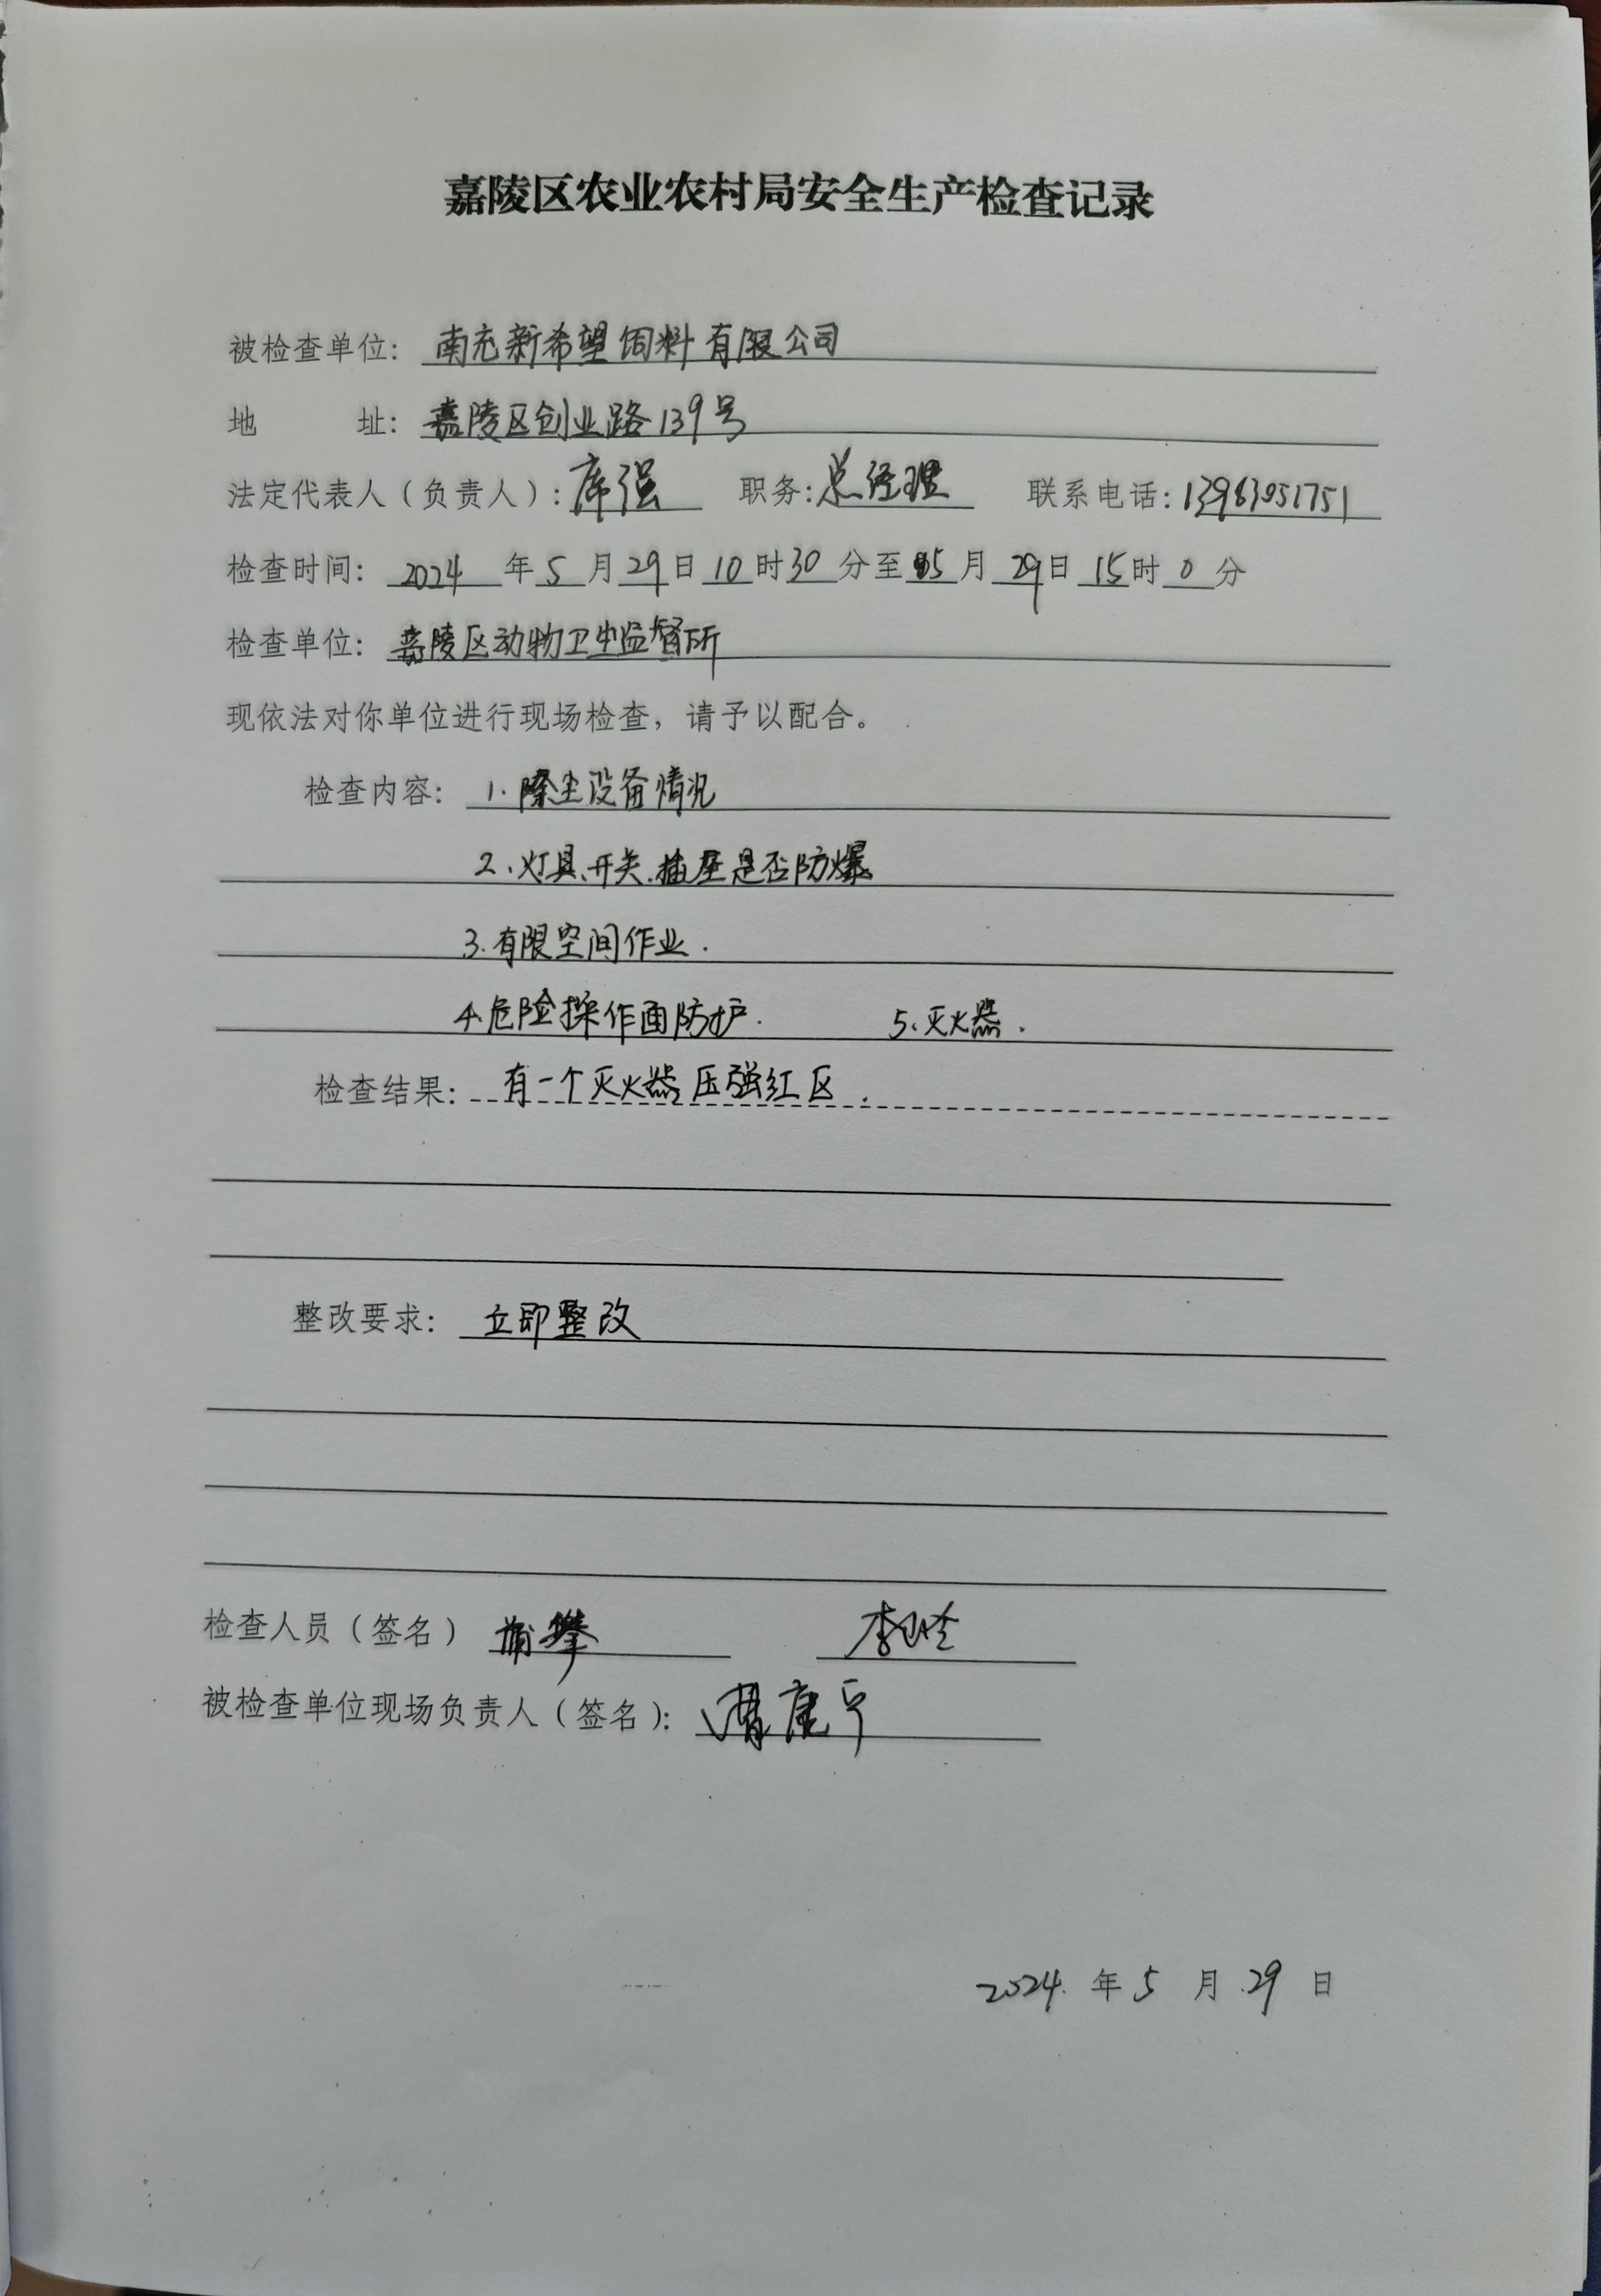 嘉陵区农业农村局安全生产检查记录
被检查单位：南充新希望饲料有限公司
地 址：嘉陵区创业路139号
法定代表人（负责人）：席强 职务：总经理 联系电话：13983051751
检查时间：2024年5月29日10时30分至05月29日15时0分
检查单位：嘉陵区动物卫生监督所
现依法对你单位进行现场检查，请予以配合。
检查内容：1.除尘设备情况
2、灯具、开关、插座是否防爆
3.有限空间作业.
4.危险操作面防护. 5、灭火器.
检查结果：有一个灭火器压强红区.
整改要求：立即整改
检查人员（签名）蒲攀
被检查单位现场负责人（签名）：
2024.年5月29日